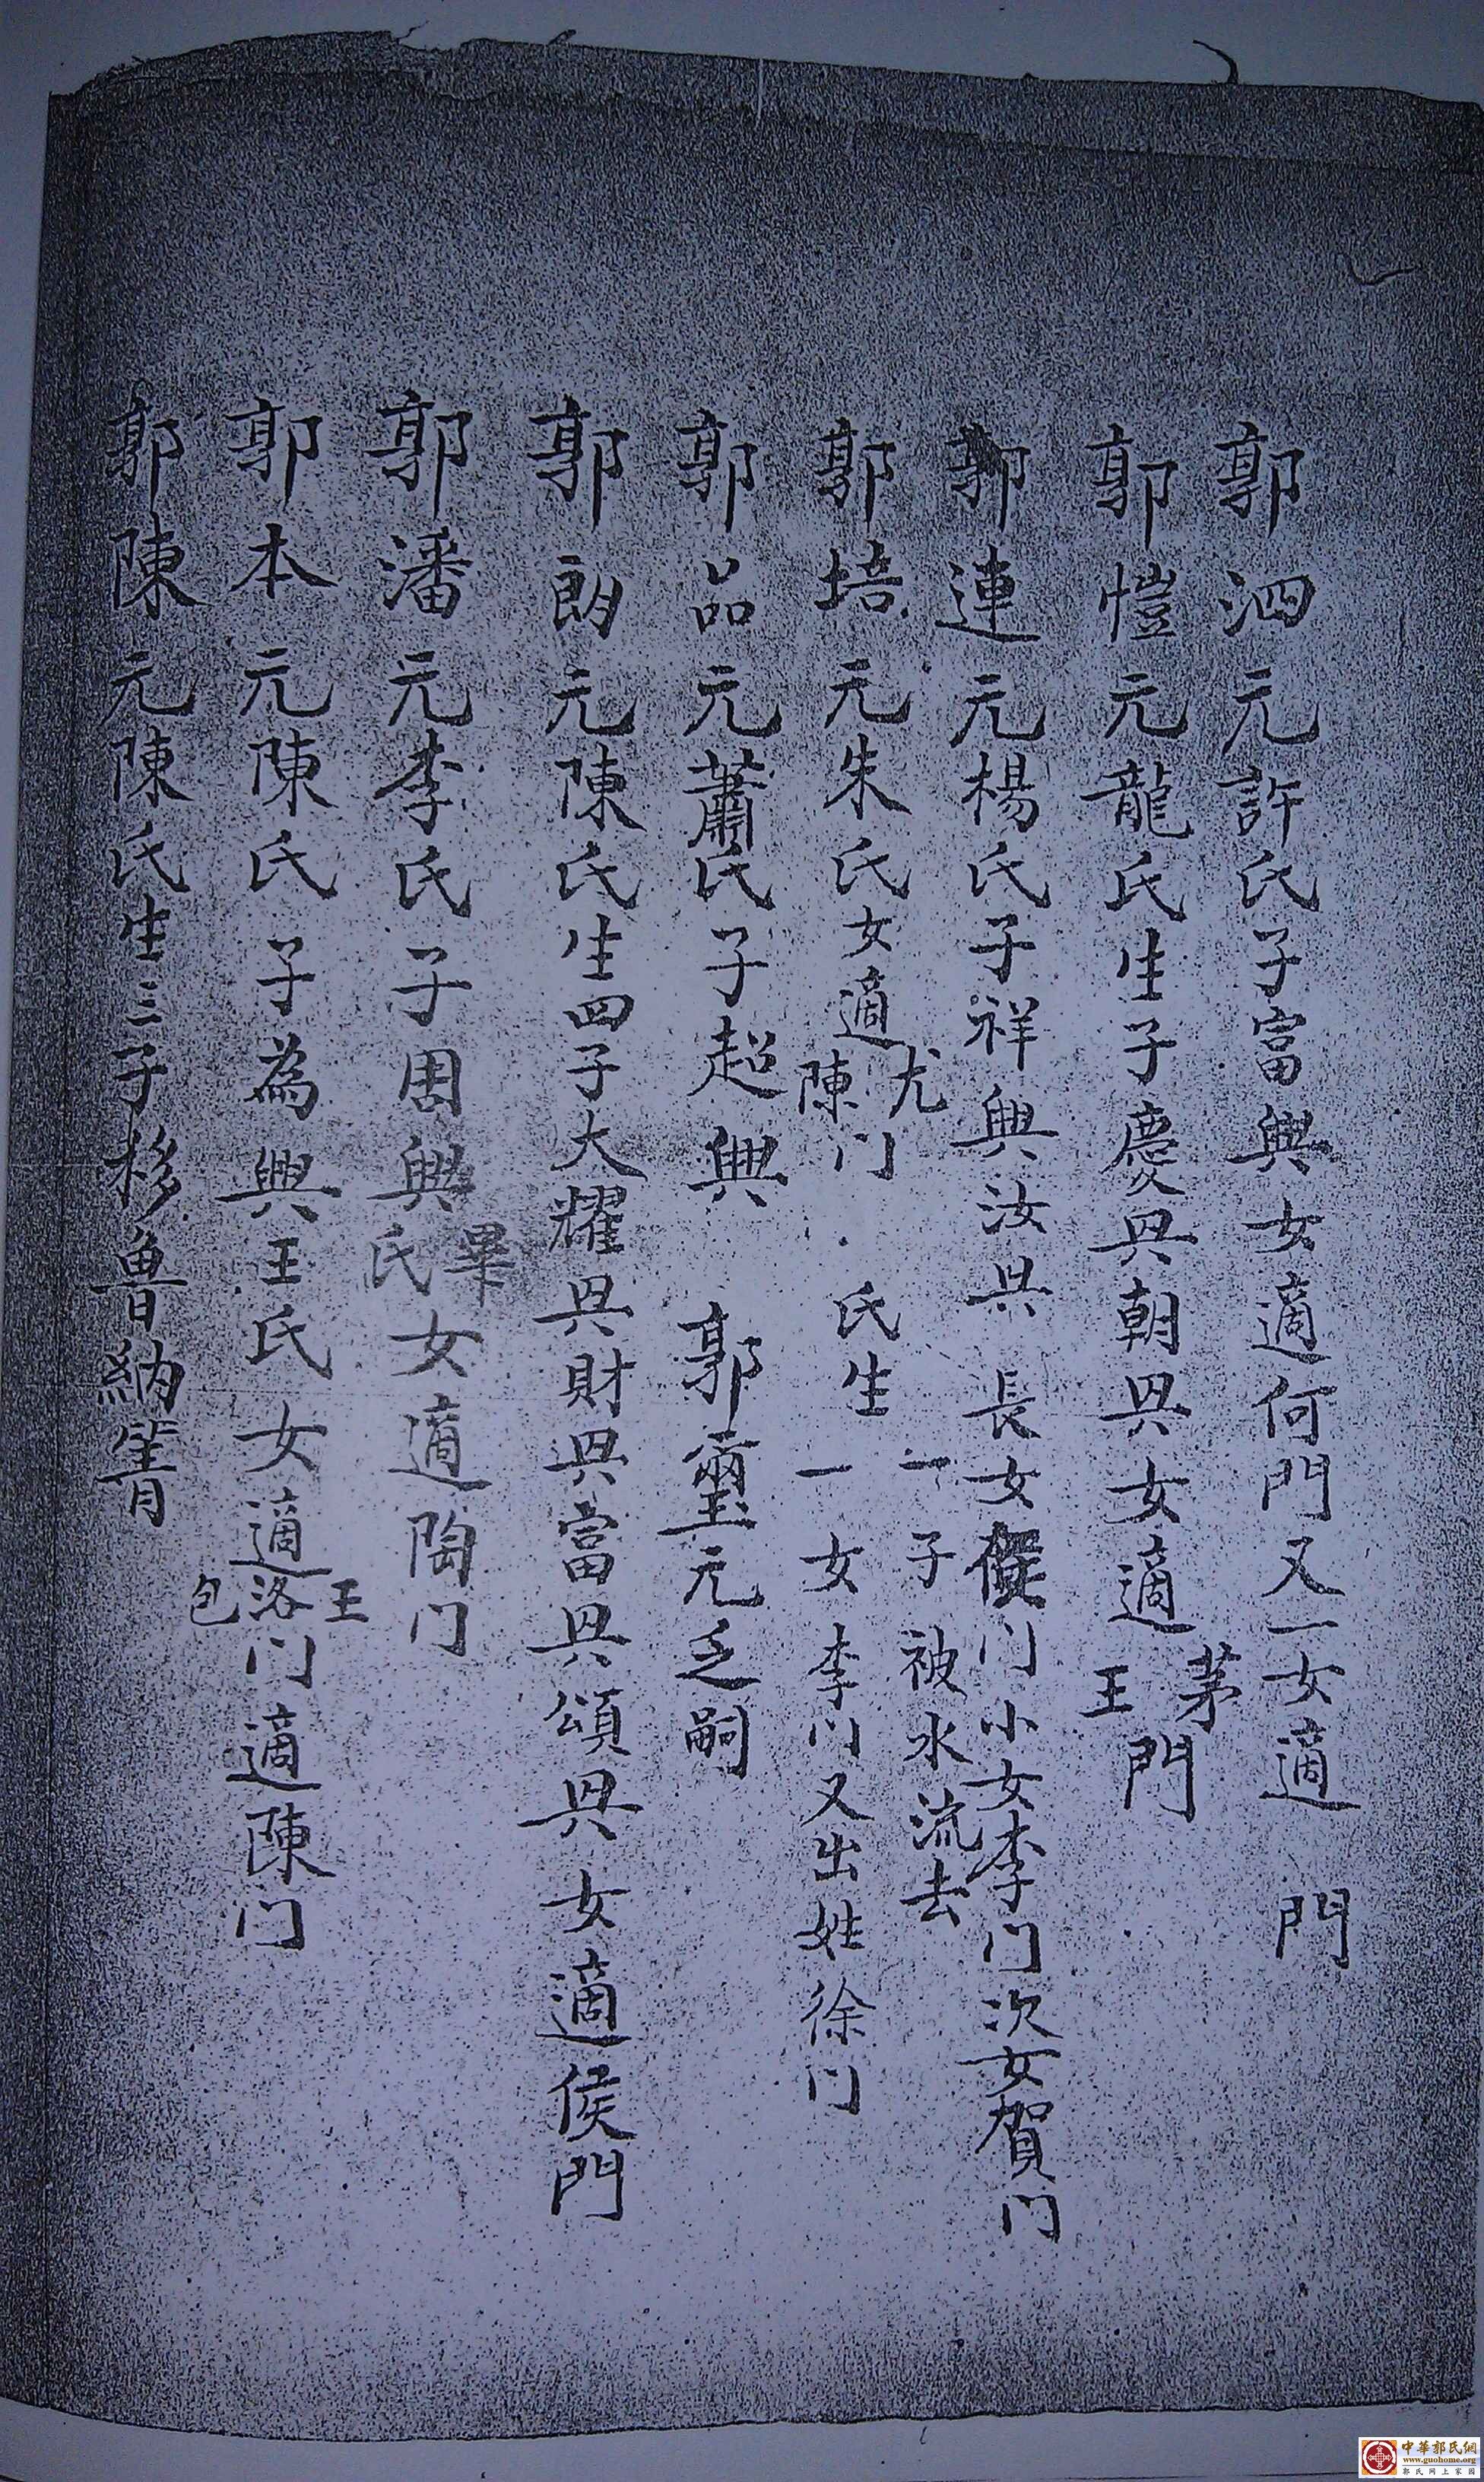 郭泗元許氏子富興女適何門又一女適 門
郭愷元龍氏生子慶興朝興女適茅王門
郭連元楊氏子祥興汝興 長女侯门小女李门次女賀门
郭培元朱氏女適尤陳门 氏生一子被水流去一女李门又出姓徐门
郭品元蕭氏子超興 郭璽元乏嗣
郭朗元陳氏生四子大耀興財興富興頌興女適侯門
郭潘元李氏子周興畢氏女適陶门
郭本元陳氏子為興王氏女適王洛包门適陳门
郭陳元陳氏生三子移魯納箐
中華郭氏網
www.guohome.org
郭氏网上家园